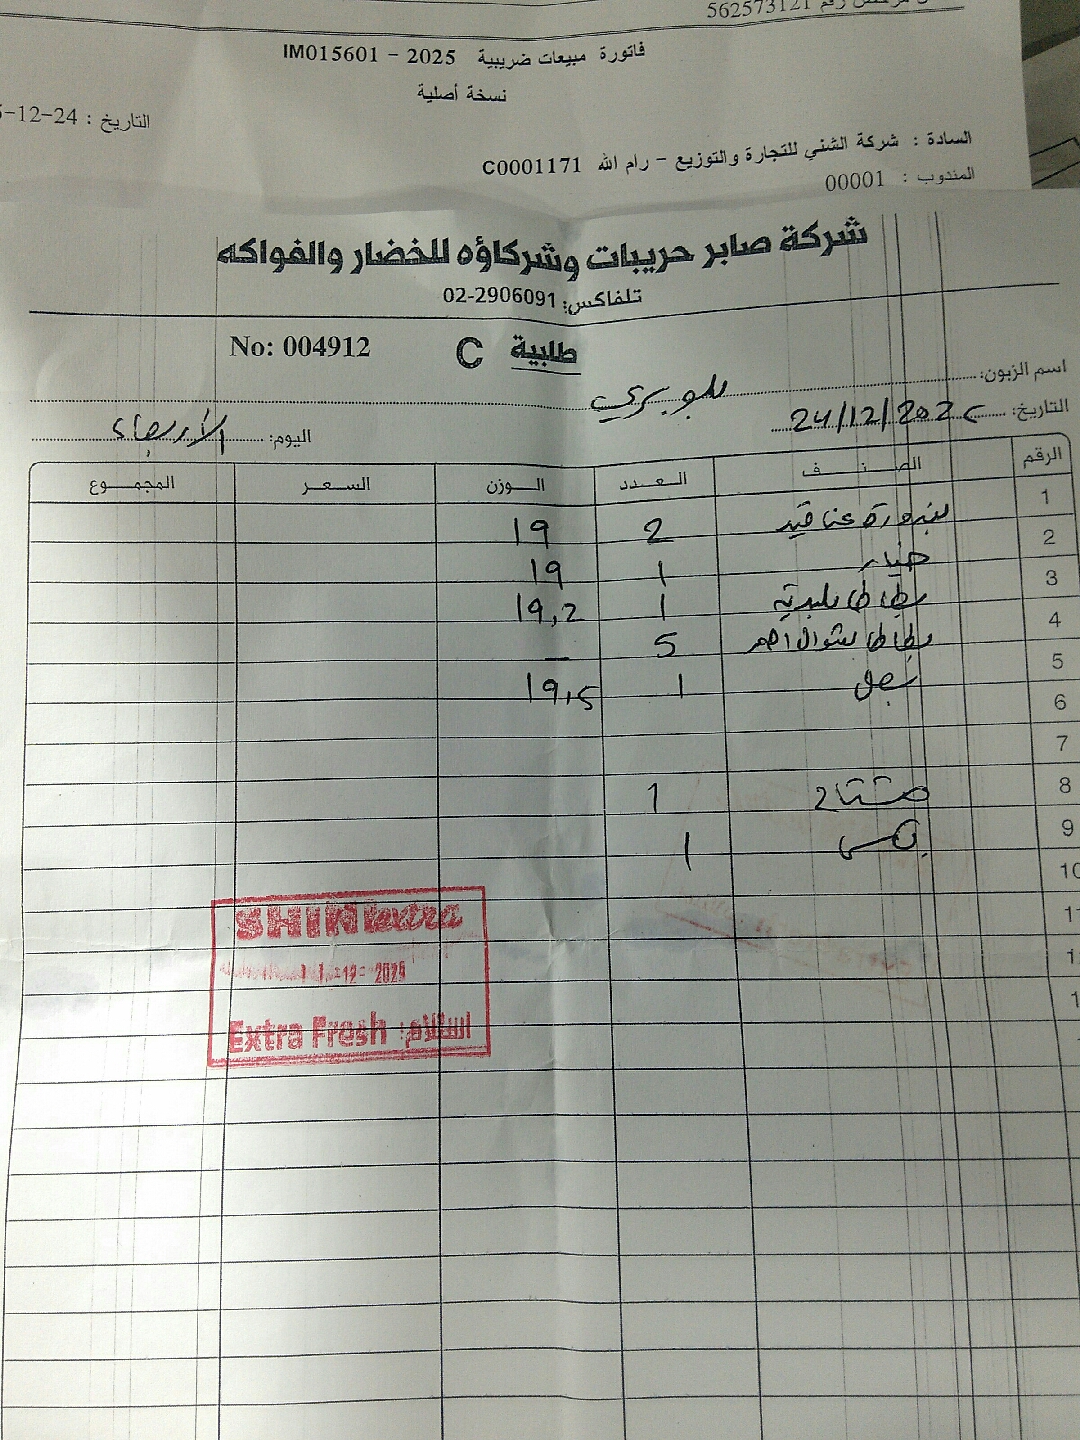 562573121
فاتورة مبيعات ضريبية IM015601 - 2025
نسخة أصلية
التاريخ : 12-24-
السادة : شركة الشني للتجارة والتوزيع - رام الله C0001171
المندوب : 00001
شركة صابر حريبات وشركاؤه للخضار والفواكه
تلفاكس: 02-2906091
طلبية C No: 004912
اسم الزبون:
التاريخ: 24/12/202 اليوم: الأربعاء
الرقم الصنف العدد الوزن السعر المجموع
1 بندورة عناقيد 2 19
2 خيار 1 19
3 بطاطا بلدية 1 19,2
4 بطاطا شوال احمر 5 –
5 بصل 1 19,5
6
7
8 مشتاح 1
9 بكس 1
10
SHINI extra
12- 2025
Extra Fresh استلام: